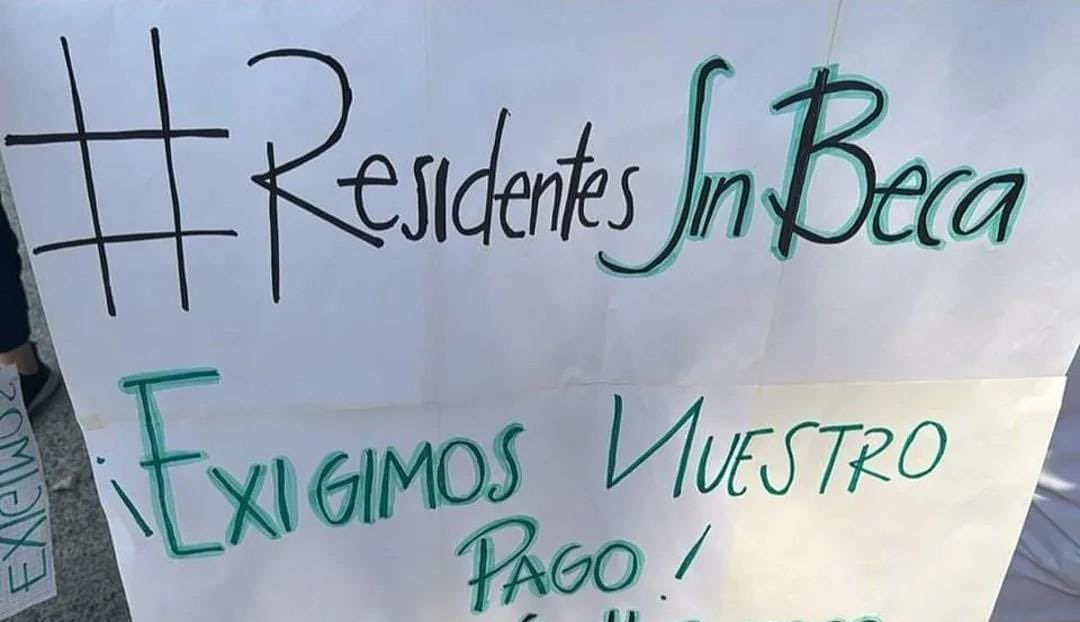 #Residentes Sin Beca
¡EXIGIMOS NUESTRO
PAGO!
EXIGIMOS